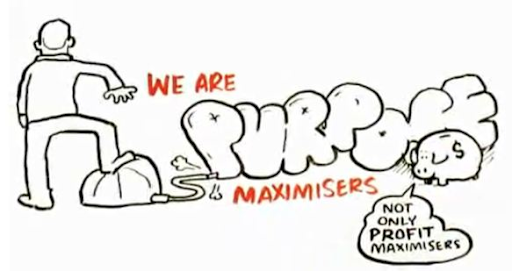 WE ARE
PURPOSE
MAXIMISERS
$
NOT
ONLY
PROFIT
MAXIMISERS